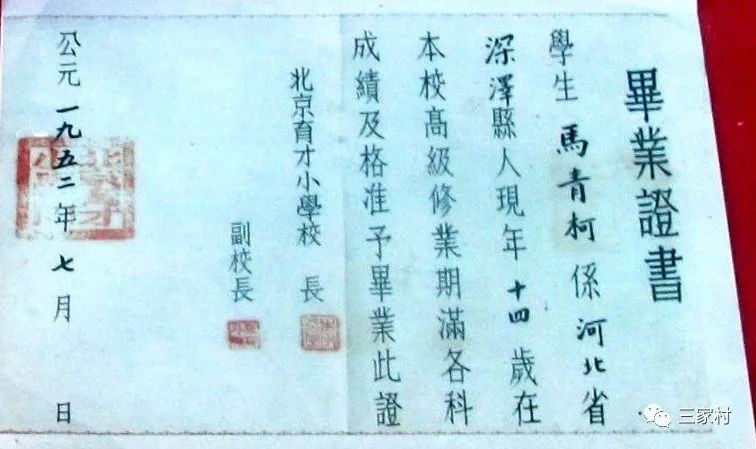 畢業證書
學生馬青柯係河北省
深澤縣人現年十四歲在
本校高級修業期滿各科
成績及格准予畢業此證
北京育才小學校長
副校長
公元一九五二年七月 日
三家村